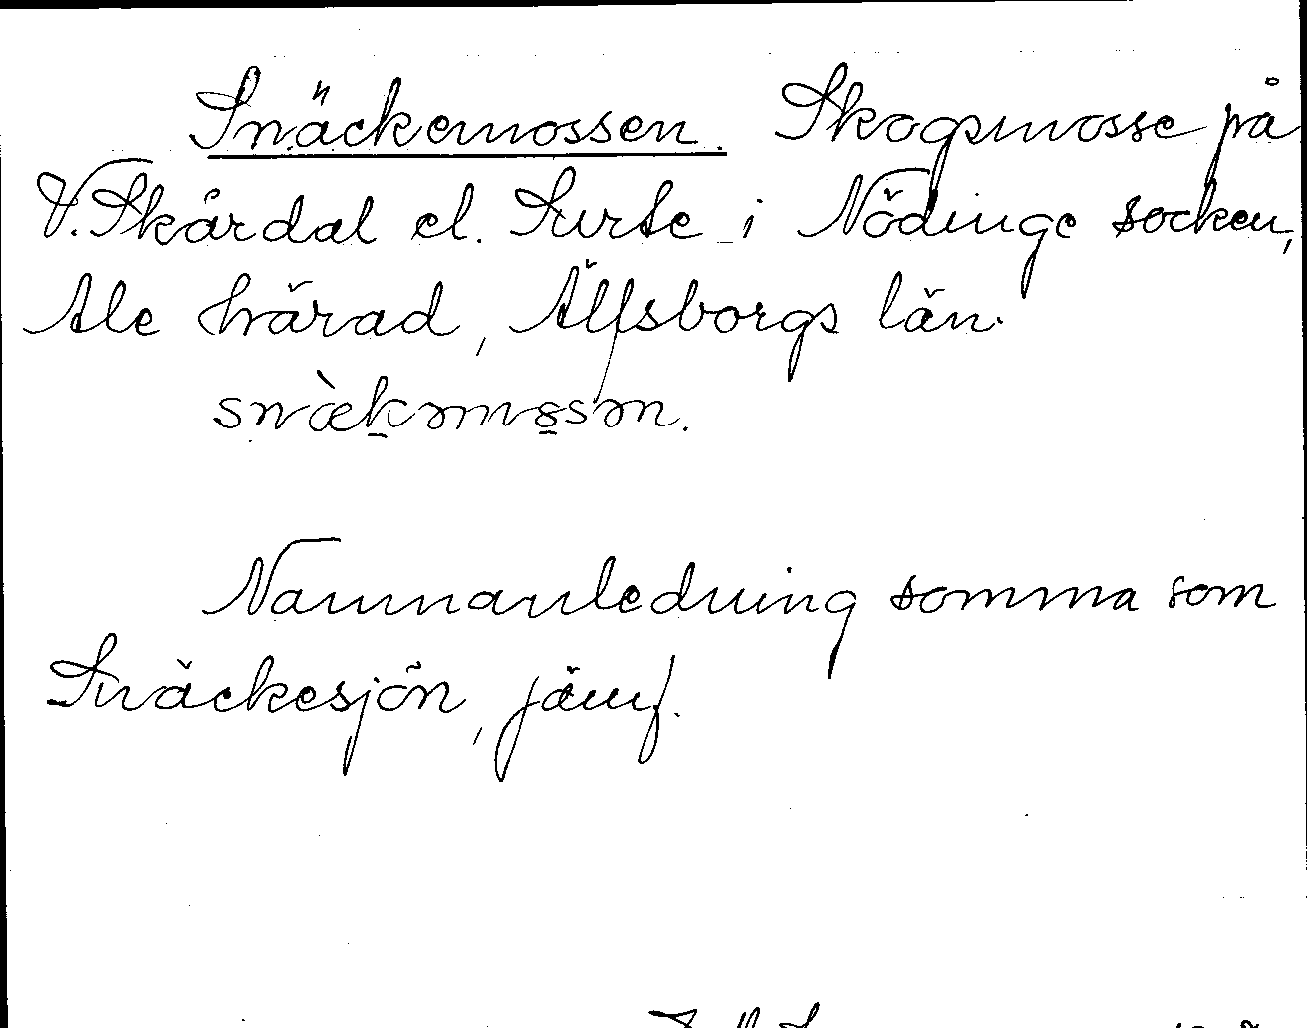 Snäckemossen. Skogsmosse på
V. Skårdal el. Surte i Nödinge socken,
Ale härad, Älfsborgs län.
Namnanledning somma som
Snäckesjön, jämf.